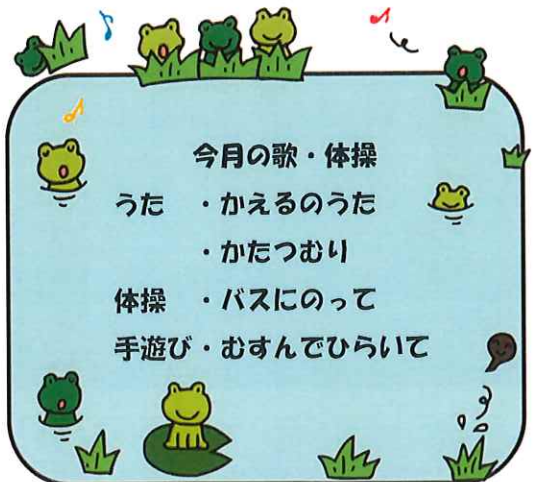 今月の歌・体操
うた ・かえるのうた
・かたつむり
体操 ・バスにのって
手遊び・むすんでひらいて